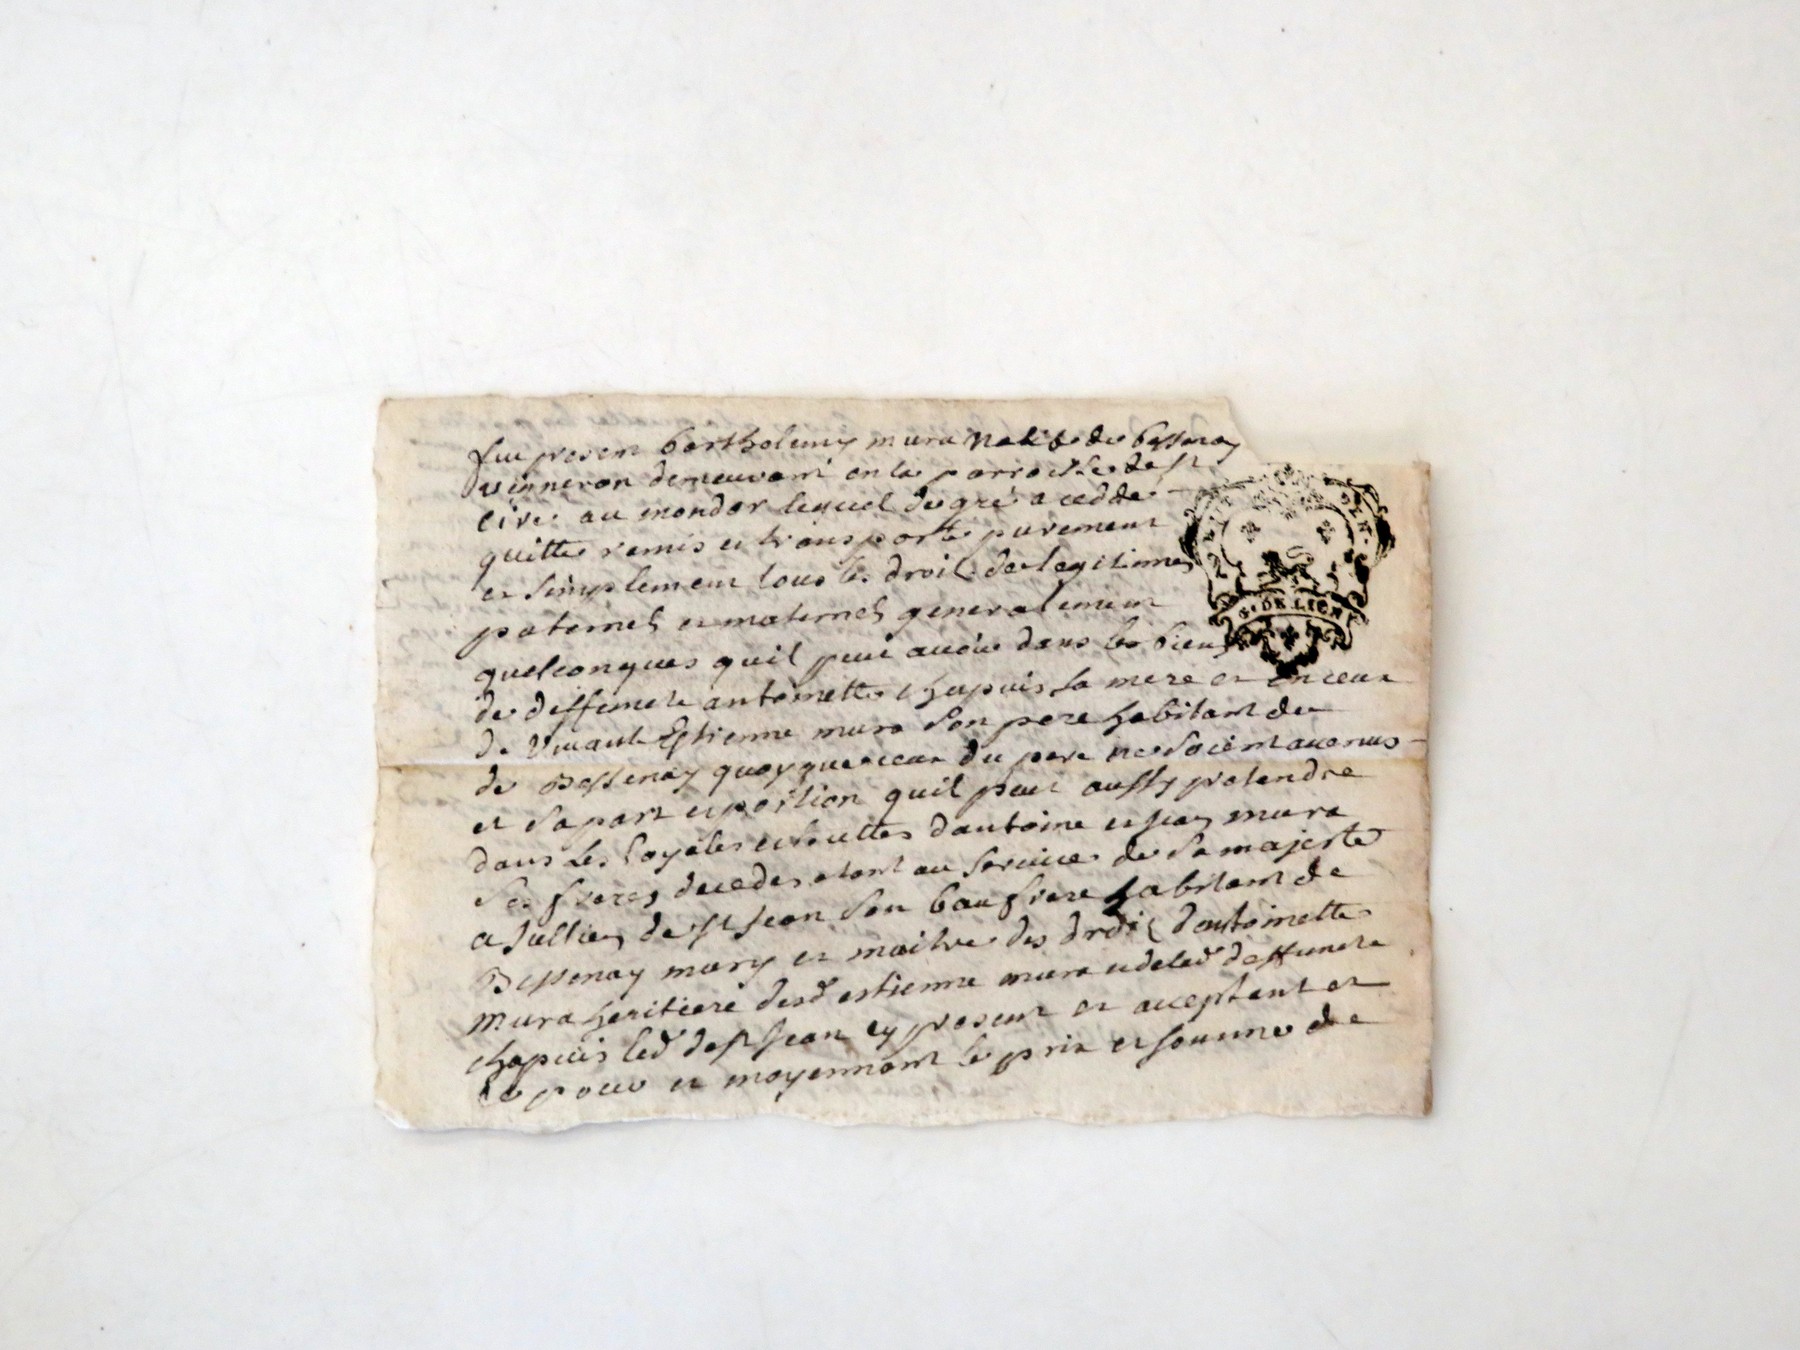 fut present bartholemy mura natif de bessenay
vigneron demeurant en la parroisse de st
cire au mondor lequel de gré a ceddé
quitte remis et transporte purement
et simplement tous les droit de legitime
paternels et maternels generalement
quelconques quil peut avoir dans les biens
de deffuncte antoinette chapuis sa mere et en ceux
de vivant Estienne mura son pere habitant de
de Bessenay quoyque ceux du pere ne soient avenus
et sa part et portion quil peut aussy pretendre
dans les loyales dantoine et jean mura
ses freres decedes etant au service de sa majesté
a Jullien de st jean son baufrere habitant de
Bessenay mary et maitre des droit dantoinette
mura heritiere desd estienne mura et delad deffuncte
chapuis led de st jean ey present et acceptant et
ce pour et moyennant le prix et somme de
G. DE LION